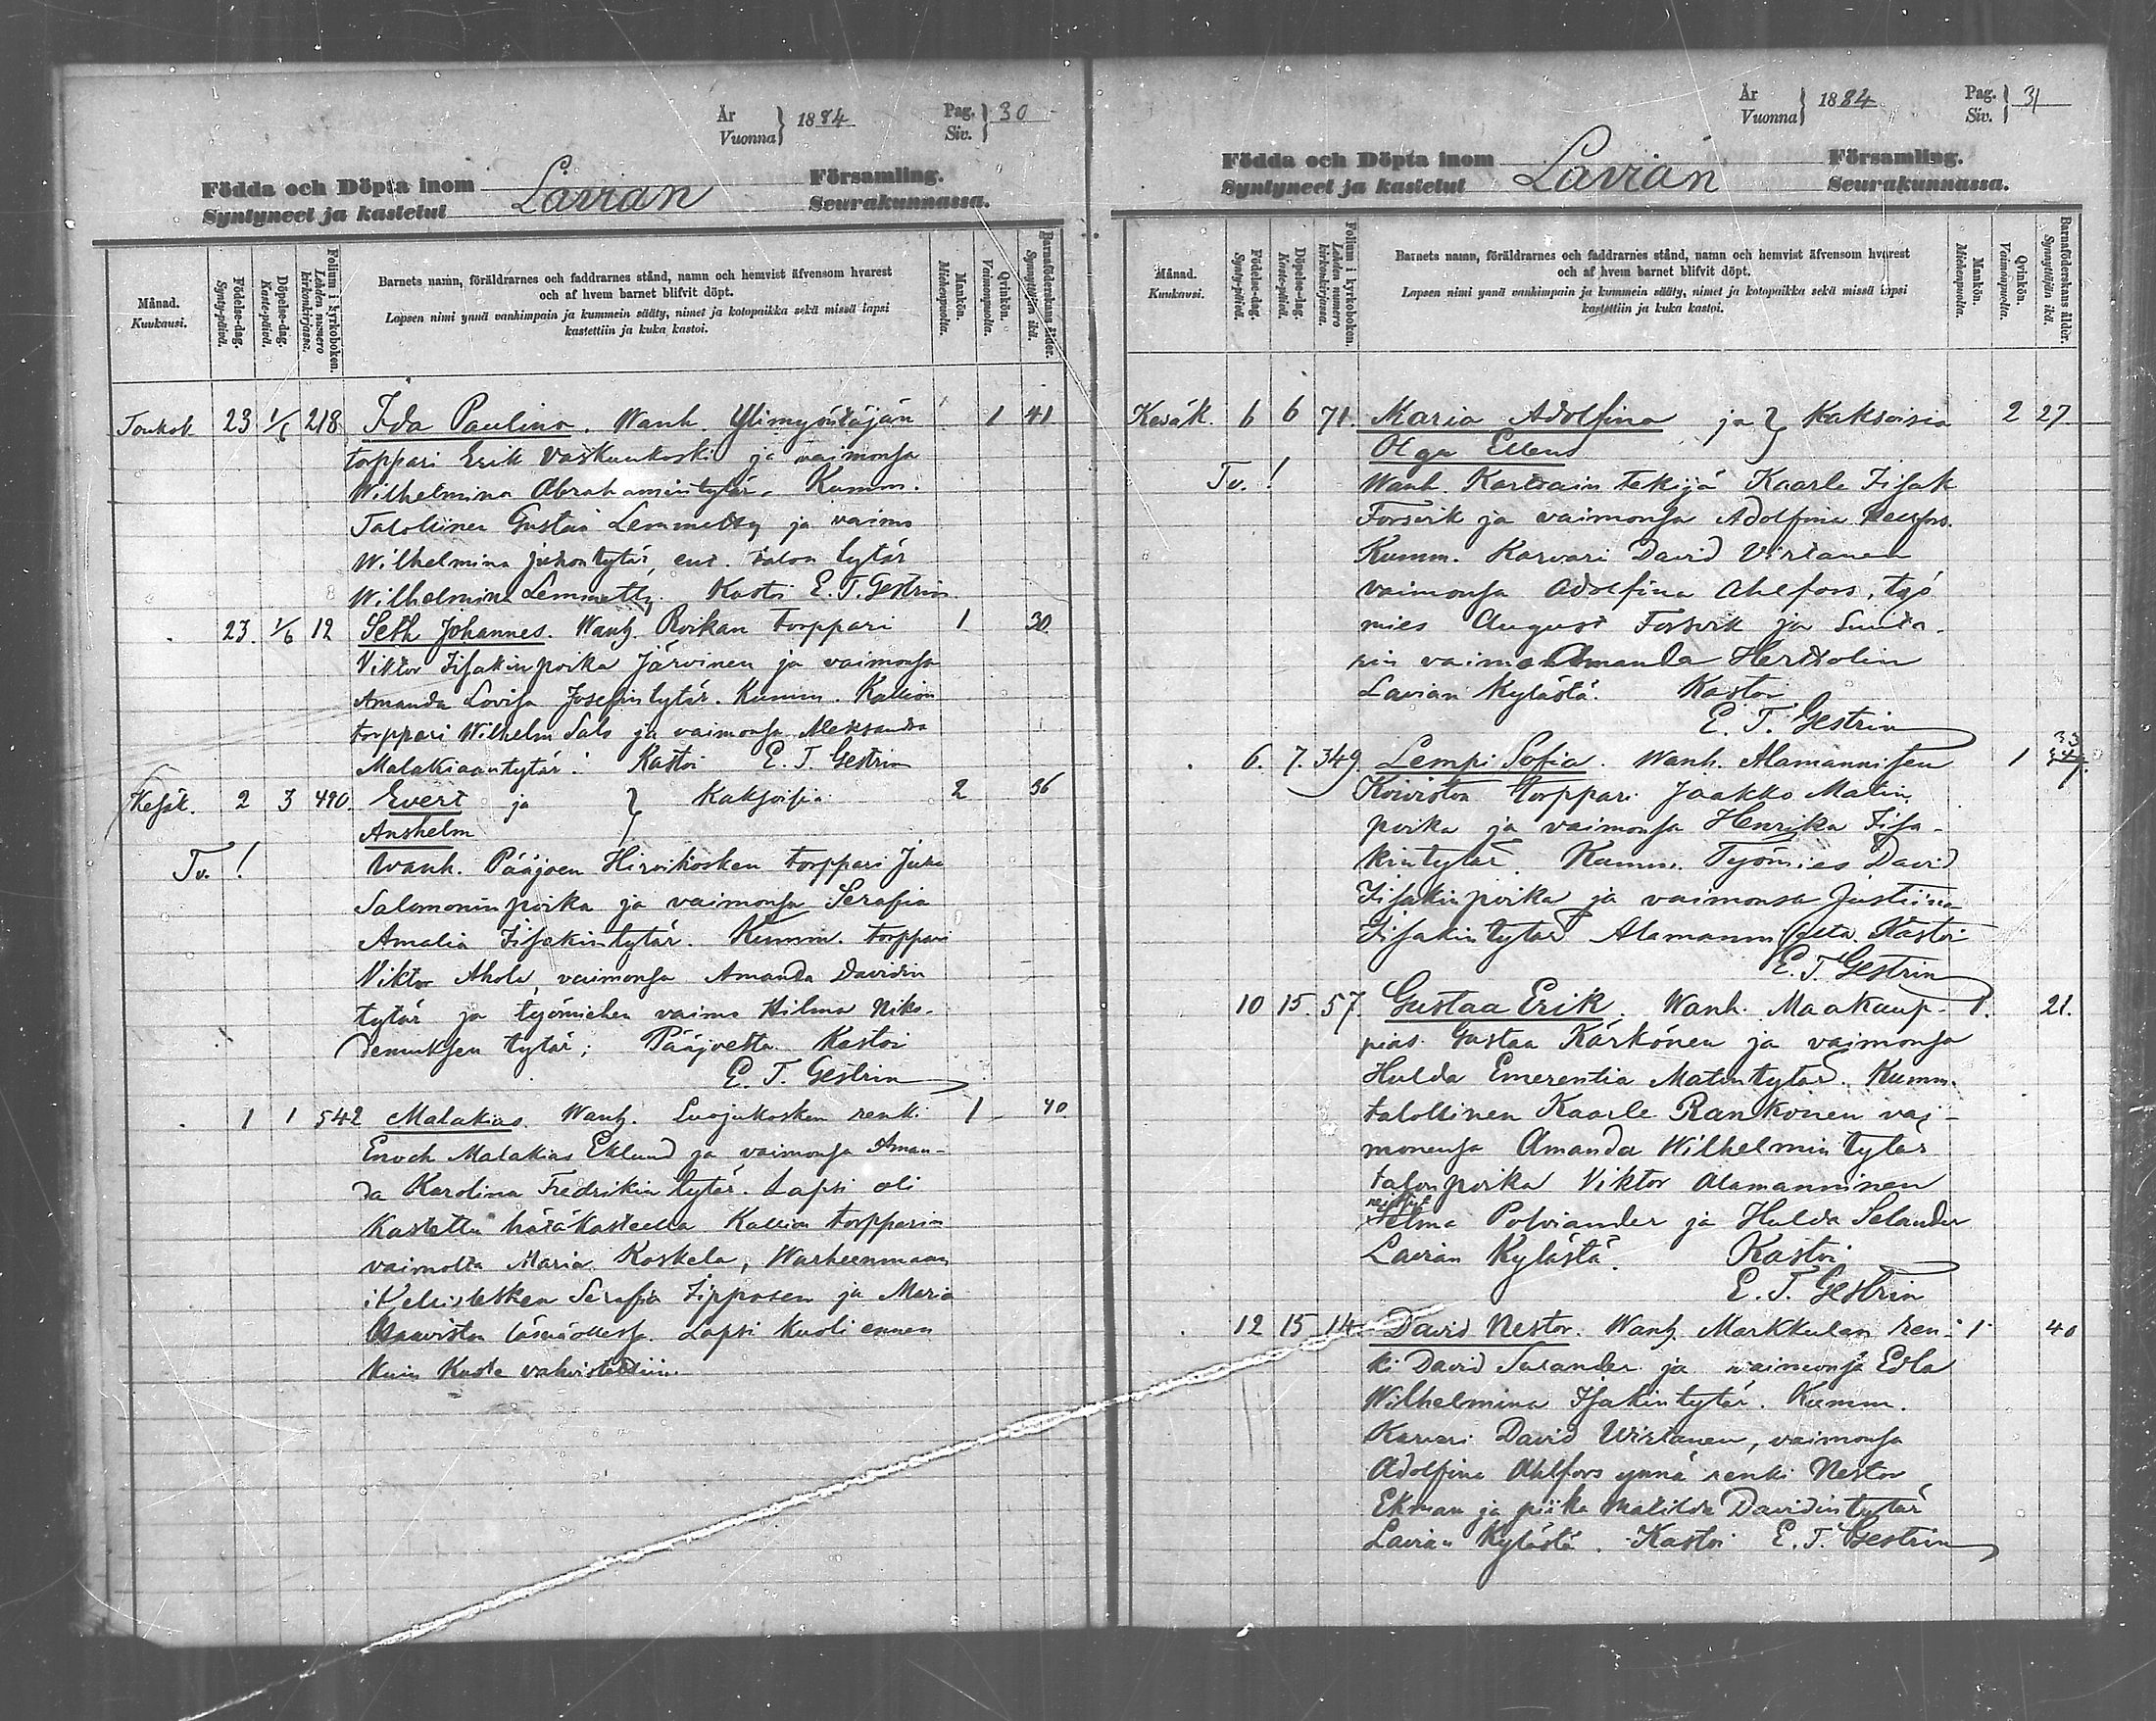 År
Vuonna } 1884
Pag.
Siv. } 30
Födda och Döpta inom Lavian Församling.
Syntyneet ja kastetut Seurakunnassa.
Månad.
Kuukausi.
Födelse-dag.
Synty-päivä.
Döpelse-dag.
Kaste-päivä.
Folium i kyrkoboken.
Lehden numero kirkonkirjassa.
Barnets namn, föräldrarnes och faddrarnes stånd, namn och hemvist äfvensom hvarest
och af hvem barnet blifvit döpt.
Lapsen nimi ynnä vanhimpain ja kummein sääty, nimet ja kotopaikka sekä missä lapsi
kastettiin ja kuka kastoi.
Mankön.
Miehenpuolta.
Qvinkön.
Vaimonpuolta.
Barnaföderskans ålder.
Synnyttäjän ikä.
Toukok. 23 1/6 218 Ida Paulina. Wanh. Ylimyöntäjän 1 41
torppari Erik Vaskuukoski ja vaimonsa
Wilhelmina Abrahamintytär. Kumm.
Talollinen Gustaa Lemmetty ja vaimo
Wilhelmina Juhontytär, talon tytär
Wilhelmina Lemmetty. Kastoi E. T. Gestrin
23. 1/6 12 Seth Johannes. Wanh. Roikan torppari 1 30
Viktor Iisakinpoika Järvinen ja vaimonsa
Amanda Lovisa Josefintytär. Kumm. Kallion
torppari Wilhelm Salo ja vaimonsa Aleksandra
Malakiaantytär. Kastoi E. T. Gestrin
Kesäk. 2 3 490. Evert ja } Kaksoisia 2 36
Anshelm
Tv. ! Wanh. Pääjoen Hirvikosken torppari Juha
Salomoninpoika ja vaimonsa Serafia
Amalia Iisakintytär. Kumm. torppari
Viktor Ahola, vaimonsa Amanda Davidin
tytär ja työmiehen vaimo Hilma Niko-
demuksen tytär; Pääjoelta Kastoi
E. T. Gestrin
1 1 542 Malakias. Wanh. Suojukosken renki 1 40.
Enoch Malakias Eklund ja vaimonsa Aman-
da Karolina Fredrikin tytär. Lapsi oli
Kastettu hätäkasteella Kallion torpparin
vaimolta Maria Koskela, Warheenmaan
Serafia Zipposen ja Maria
läsnäollessa. Lapsi kuoli ennen
kuin Kaste vahvistettiin.
År
Vuonna } 1884
Pag.
Siv. } 31
Födda och Döpta inom Lavian Församling.
Syntyneet ja kastetut Seurakunnassa.
Månad.
Kuukausi.
Födelse-dag.
Synty-päivä.
Döpelse-dag.
Kaste-päivä.
Folium i kyrkoboken.
Lehden numero kirkonkirjassa.
Barnets namn, föräldrarnes och faddrarnes stånd, namn och hemvist äfvensom hvarest
och af hvem barnet blifvit döpt.
Lapsen nimi ynnä vanhimpain ja kummein sääty, nimet ja kotopaikka sekä missä lapsi
kastettiin ja kuka kastoi.
Mankön.
Miehenpuolta.
Qvinkön.
Vaimonpuolta.
Barnaföderskans ålder.
Synnyttäjän ikä.
Kesäk. 6 6 71. Maria Adolfina ja } Kaksoisia 2 27.
Olga Ellens
Tv. ! Wanh. Kartvain tekijä Kaarle Iisak
Forsvik ja vaimonsa Adolfina
Kumm. Karvari David Virtanen
vaimonsa Adolfina Ahlfors, työ
mies August Forsvik ja Sunta-
rin vaimo Amanda Hertzolin
Lavian Kylästä. Kastoi
E. T. Gestrin
6. 7. 349. Lempi Sofia. Wanh. Alamannisen 1 33
Koiviston torppari Jaakko Matin
poika ja vaimonsa Henrika Iisa-
kintytär. Kumm. Työmies David
Iisakinpoika ja vaimonsa Justiina
Iisakintytär Kastoi
E. T. Gestrin
10 15. 57. Gustaa Erik. Wanh. Maakaup- 1. 21.
pias Gustaa Kärkönen ja vaimonsa
Hulda Emerentia Matintytär. Kumm.
talollinen Kaarle Rankonen vai-
monensa Amanda Wilhelmin tytär
talonpoika Viktor Alamanninen
neitsyt
Selma Polviander ja Hulda Selander
Lavian Kylästä. Kastoi
E. T. Gestrin
12 15 14. David Nestor. Wanh. Markkulan ren- 1 40
ki David Salander ja vaimonsa Edla
Wilhelmina Isakintytär. Kumm.
Karvari David Wirtanen, vaimonsa
Adolfina Ahlfors ynnä renki Nestor
Ekman ja piika Matilda Davidintytär
Lavian Kylästä. Kastoi E. T. Gestrin